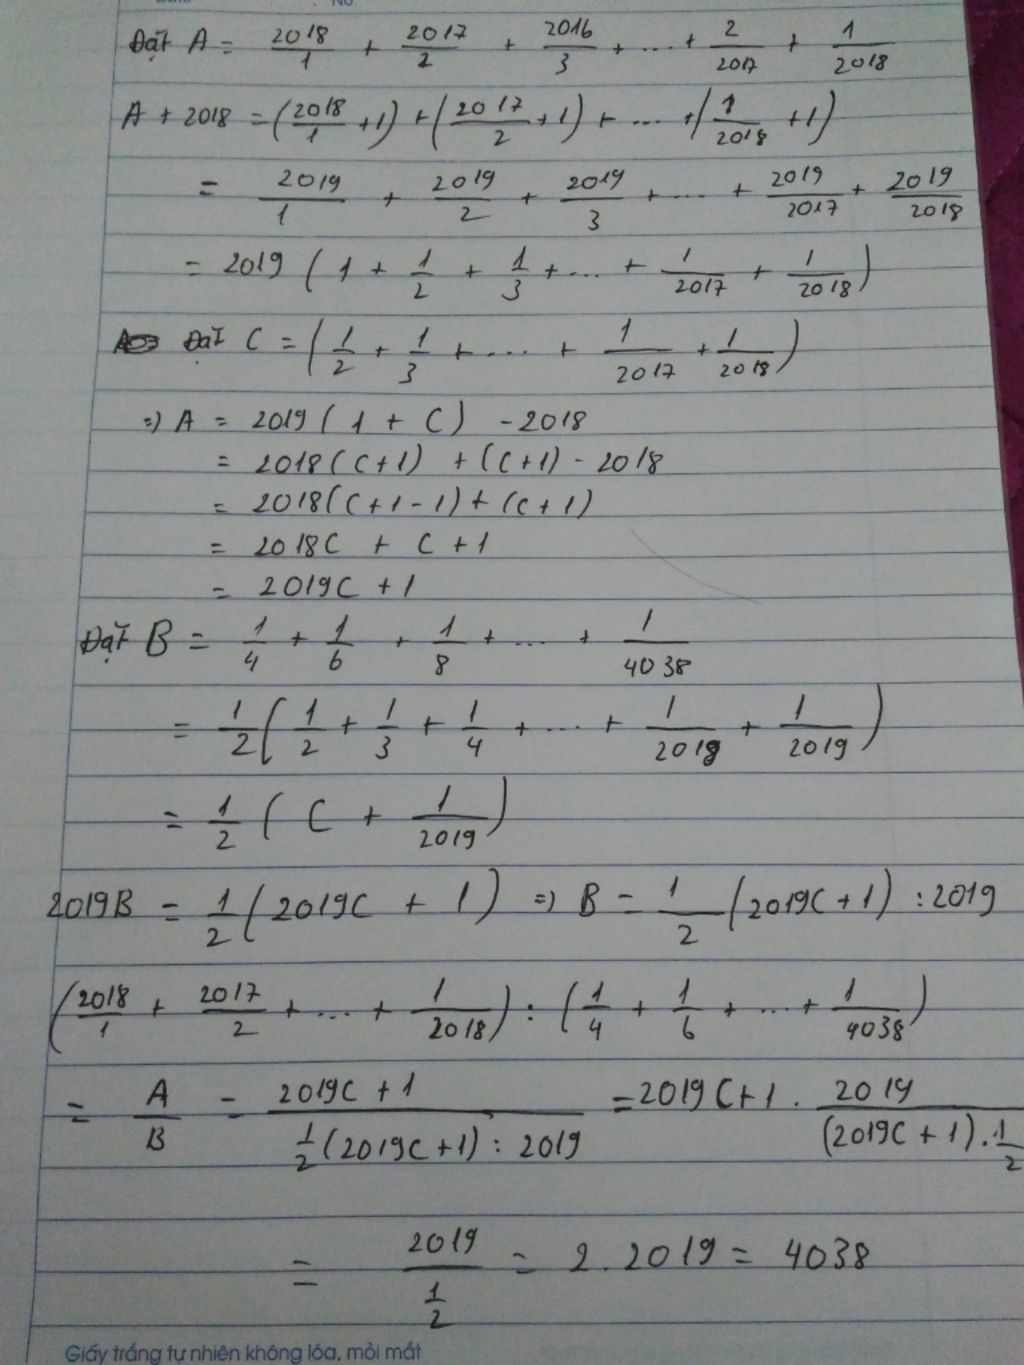 Đặt A = 2018/1 + 2017/2 + 2016/3 + ... + 2/2017 + 1/2018
A + 2018 = (2018/1 + 1) + (2017/2 + 1) + ... + (1/2018 + 1)
= 2019/1 + 2019/2 + 2019/3 + ... + 2019/2017 + 2019/2018
= 2019 (1 + 1/2 + 1/3 + ... + 1/2017 + 1/2018)
Đặt C = (1/2 + 1/3 + ... + 1/2017 + 1/2018)
=) A = 2019 (1 + C) - 2018
= 2018(C+1) + (C+1) - 2018
= 2018(C+1-1) + (C+1)
= 2018C + C + 1
= 2019C + 1
Đặt B = 1/4 + 1/6 + 1/8 + ... + 1/4038
= 1/2 (1/2 + 1/3 + 1/4 + ... + 1/2018 + 1/2019)
= 1/2 (C + 1/2019)
2019B = 1/2 (2019C + 1) =) B = 1/2 (2019C + 1) : 2019
(2018/1 + 2017/2 + ... + 1/2018) : (1/4 + 1/6 + ... + 1/4038)
= A/B = (2019C + 1)/(1/2 (2019C + 1) : 2019) = 2019C + 1 . 2019/((2019C + 1) . 1/2)
= 2019/(1/2) = 2 . 2019 = 4038
Giấy trắng tự nhiên không lóa, mỏi mắt